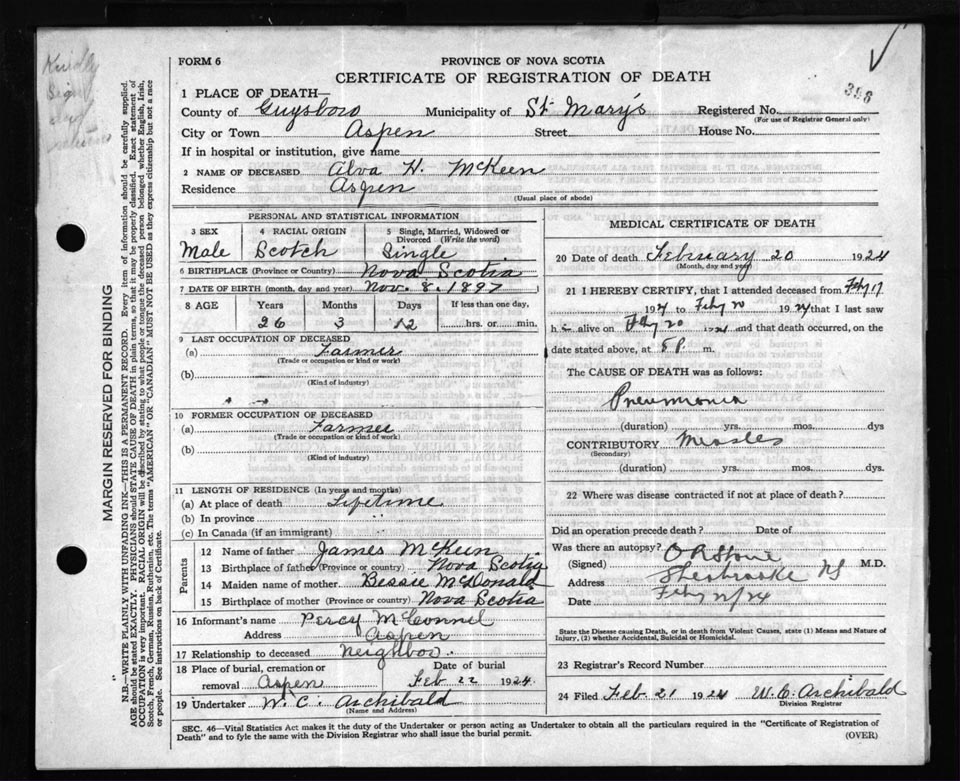 Kindly
Sign
FORM 6
PROVINCE OF NOVA SCOTIA
CERTIFICATE OF REGISTRATION OF DEATH
398
1 PLACE OF DEATH—
County of Guysboro Municipality of St Mary's Registered No.
(For use of Registrar General only)
City or Town Aspen Street House No.
If in hospital or institution, give name
2 NAME OF DECEASED Alva H. McKeen
Residence Aspen
(Usual place of abode)
PERSONAL AND STATISTICAL INFORMATION
3 SEX 4 RACIAL ORIGIN 5 Single, Married, Widowed or
Divorced (Write the word)
Male Scotch Single
6 BIRTHPLACE (Province or Country) Nova Scotia
7 DATE OF BIRTH (month, day and year) Nov. 8. 1897
8 AGE Years Months Days If less than one day,
26 3 12 hrs. or min.
9 LAST OCCUPATION OF DECEASED
(a) Farmer
(Trade or occupation or kind or work)
(b)
(Kind of industry)
10 FORMER OCCUPATION OF DECEASED
(a) Farmer
(Trade or occupation or kind of work)
(b)
(Kind of industry)
11 LENGTH OF RESIDENCE (In years and months)
(a) At place of death Lifetime
(b) In province "
(c) In Canada (if an immigrant) "
Parents
12 Name of father James McKeen
13 Birthplace of father (Province or country) Nova Scotia
14 Maiden name of mother Bessie McDonald
15 Birthplace of mother (Province or country) Nova Scotia
16 Informant's name Percy McConnel
Address Aspen
17 Relationship to deceased Neighbor
18 Place of burial, cremation or Date of burial
removal Aspen Feb 22 1924.
19 Undertaker W. C. Archibald
(Name and Address)
MEDICAL CERTIFICATE OF DEATH
20 Date of death February 20 1924
(Month, day and year)
21 I HEREBY CERTIFY, that I attended deceased from Feby 17
1924 to Feby 20 1924 that I last saw
h alive on Feby 20 1924 and that death occurred, on the
date stated above, at 8 P. m.
The CAUSE OF DEATH was as follows:
Pneumonia
(duration) yrs. mos. dys
CONTRIBUTORY Measles
(Secondary)
(duration) yrs. mos. dys.
22 Where was disease contracted if not at place of death?
Did an operation precede death? Date of
Was there an autopsy?
(Signed) O R Stone M.D.
Address Sherbrooke NS
Date Feby 21/24
State the Disease causing Death, or in death from Violent Causes, state (1) Means and Nature of
Injury, (2) whether Accidental, Suicidal or Homicidal.
23 Registrar's Record Number
24 Filed Feb. 21 1924 W. C. Archibald
Division Registrar
SEC. 46—Vital Statistics Act makes it the duty of the Undertaker or person acting as Undertaker to obtain all the particulars required in the "Certificate of Registration of
Death" and to fyle the same with the Division Registrar who shall issue the burial permit.
(OVER)
MARGIN RESERVED FOR BINDING
N.B.—WRITE PLAINLY WITH UNFADING INK—THIS IS A PERMANENT RECORD. Every item of information should be carefully supplied.
AGE should be stated EXACTLY. PHYSICIANS should STATE CAUSE OF DEATH in plain terms, so that it may be properly classified. Exact statement of
OCCUPATION is very important. RACIAL ORIGIN will be described by stating to what people or tongue the deceased person belonged, whether English, Irish,
Scotch, French, German, Russian, Ruthenian, etc. The terms "AMERICAN" OR "CANADIAN" MUST NOT BE USED as they express citizenship but not a race
or people. See instructions on back of Certificate.